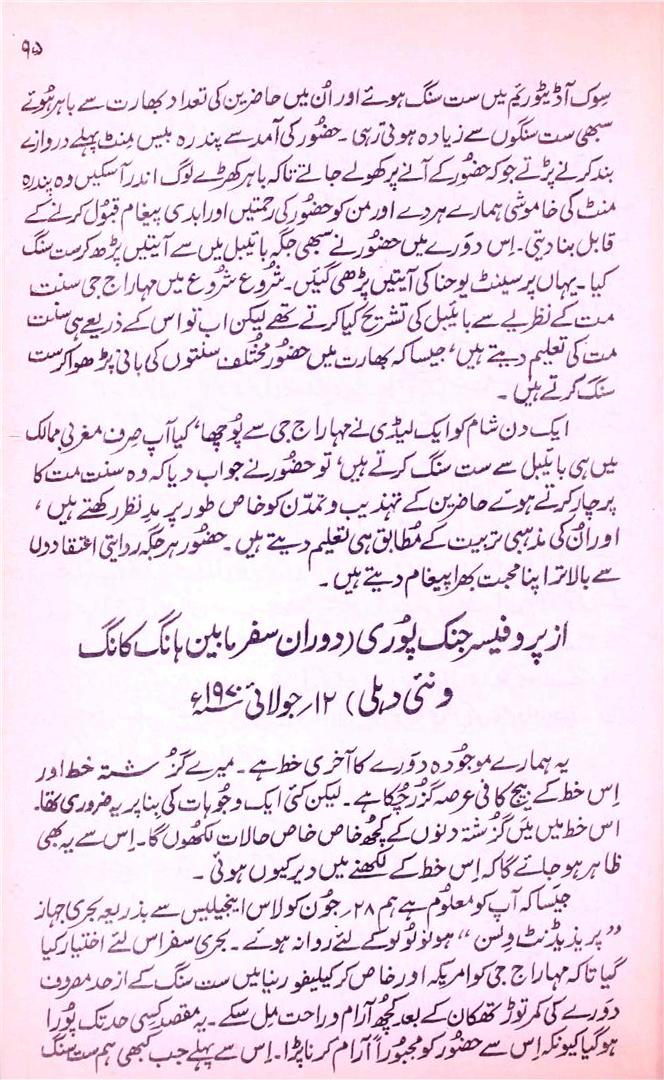 ۹۵
سِوِک آڈیٹوریَم میں ست سنگ ہوئے اور اُن میں حاضرین کی تعداد بھارت سے باہر ہُوئے
سبھی ست سنگوں سے زیادہ ہوتی رہی۔ حضُور کی آمد سے پندرہ بیس مِنٹ پہلے دروازے
بند کرنے پڑتے جو کہ حضُور کے آنے پر کھولے جاتے تاکہ باہر کھڑے لوگ اندر آ سکیں وہ پندرہ
منٹ کی خاموشی ہمارے ہردے اور من کو حضُور کی رحمتیں اور ابدی پیغام قبُول کرنے کے
قابل بنا دیتی۔ اِس دَورے میں حضُور نے سبھی جگہ بائیبل میں سے آیتیں پڑھ کر ست سنگ
کیا۔ یہاں پر سینٹ یوحنا کی آیتیں پڑھی گئیں۔ شرُوع شرُوع میں مہاراج جی سنت
مت کے نظریے سے بائیبل کی تشریح کیا کرتے تھے لیکن اب تو اس کے ذریعے ہی سنت
مت کی تعلیم دیتے ہیں، جیسا کہ بھارت میں حضُور مختلف سنتوں کی بانی پڑھوا کر ست
سنگ کرتے ہیں۔
ایک دن شام کو ایک لیڈی نے مہاراج جی سے پُوچھا، کیا آپ صِرف مغربی ممالک
میں ہی بائیبل سے ست سنگ کرتے ہیں، تو حضُور نے جواب دیا کہ وہ سنت مت کا
پرچار کرتے ہوئے حاضرین کے تہذیب و تمدّن کو خاص طور پر مدِ نظر رکھتے ہیں،
اور اُن کی مذہبی تربیت کے مُطابق ہی تعلیم دیتے ہیں۔ حضُور ہر جگہ روایتی اعتقادوں
سے بالاتر اپنا محبت بھرا پیغام دیتے ہیں۔
از پروفیسر جنک پُوری (دوران سفر مابین ہانگ کانگ
و نئی دہلی) ۱۲؍ جولائی ۱۹۷۰ء
یہ ہمارے موجُودہ دَورے کا آخری خط ہے۔ میرے گزُشتہ خط اور
اِس خط کے بیچ کافی عرصہ گزُر چُکا ہے۔ لیکن کئی ایک وجُوہات کی بنا پر یہ ضروری تھا۔
اس خط میں مَیں گزُشتہ دنوں کے کُچھ خاص خاص حالات لکھُوں گا۔ اِس سے یہ بھی
ظاہر ہو جائے گا کہ اِس خط کے لکھنے میں دیر کیوں ہوئی۔
جیسا کہ آپ کو معلُوم ہے ہم ۲۸؍ جُون کو لاس اینجیلیس سے بذریعہ بحری جہاز
”پریذیڈنٹ وِلسن“ ہونولُولُو کے لئے روانہ ہوئے۔ بحری سفر اس لئے اختیار کیا
گیا تاکہ مہاراج جی کو امریکہ اور خاص کر کیلیفورنیا میں ست سنگ کے از حد مصروف
دَورے کی کمر توڑ تھکان کے بعد کُچھ آرام و راحت مِل سکے۔ یہ مقصد کسی حد تک پُورا
ہو گیا کیونکہ اِس سے حضُور کو مجبُوراً آرام کرنا پڑا۔ اِس سے پہلے جب کبھی ہم ست سنگ